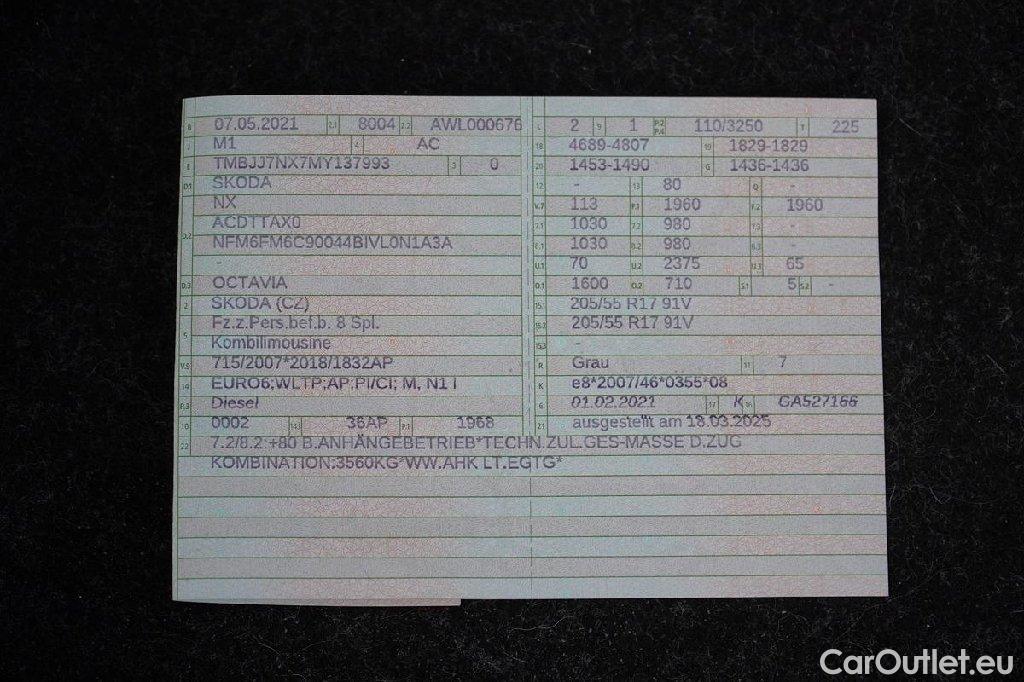 B 07.05.2021 2.1 8004 2.2 AWL000676
J M1 4 AC
E TMBJJ7NX7MY137993 3 0
D.1 SKODA
NX
D.2 ACDTTAX0
NFM6FM6C90044BIVL0N1A3A
-
D.3 OCTAVIA
2 SKODA (CZ)
5 Fz.z.Pers.bef.b. 8 Spl.
Kombilimousine
V.9 715/2007*2018/1832AP
14 EURO6;WLTP;AP;PI/CI; M, N1 I
P.3 Diesel
10 0002 14.1 36AP P.1 1968
22 7.2/8.2:+80 B.ANHÄNGEBETRIEB*TECHN.ZUL.GES-MASSE D.ZUG
KOMBINATION:3560KG*WW.AHK LT.EGTG*
L 2 9 1 P.2 P.4 110/3250 T 225
18 4689-4807 19 1829-1829
20 1453-1490 G 1436-1436
12 - 13 80 Q -
V.7 113 F.1 1960 F.2 1960
7.1 1030 7.2 980 7.3 -
8.1 1030 8.2 980 8.3 -
U.1 70 U.2 2375 U.3 65
O.1 1600 O.2 710 S.1 5 S.2 -
15.1 205/55 R17 91V
15.2 205/55 R17 91V
15.3 -
R Grau 11 7
K e8*2007/46*0355*08
6 01.02.2021 17 K 16 GA527156
21 ausgestellt am 18.03.2025
CarOutlet.eu